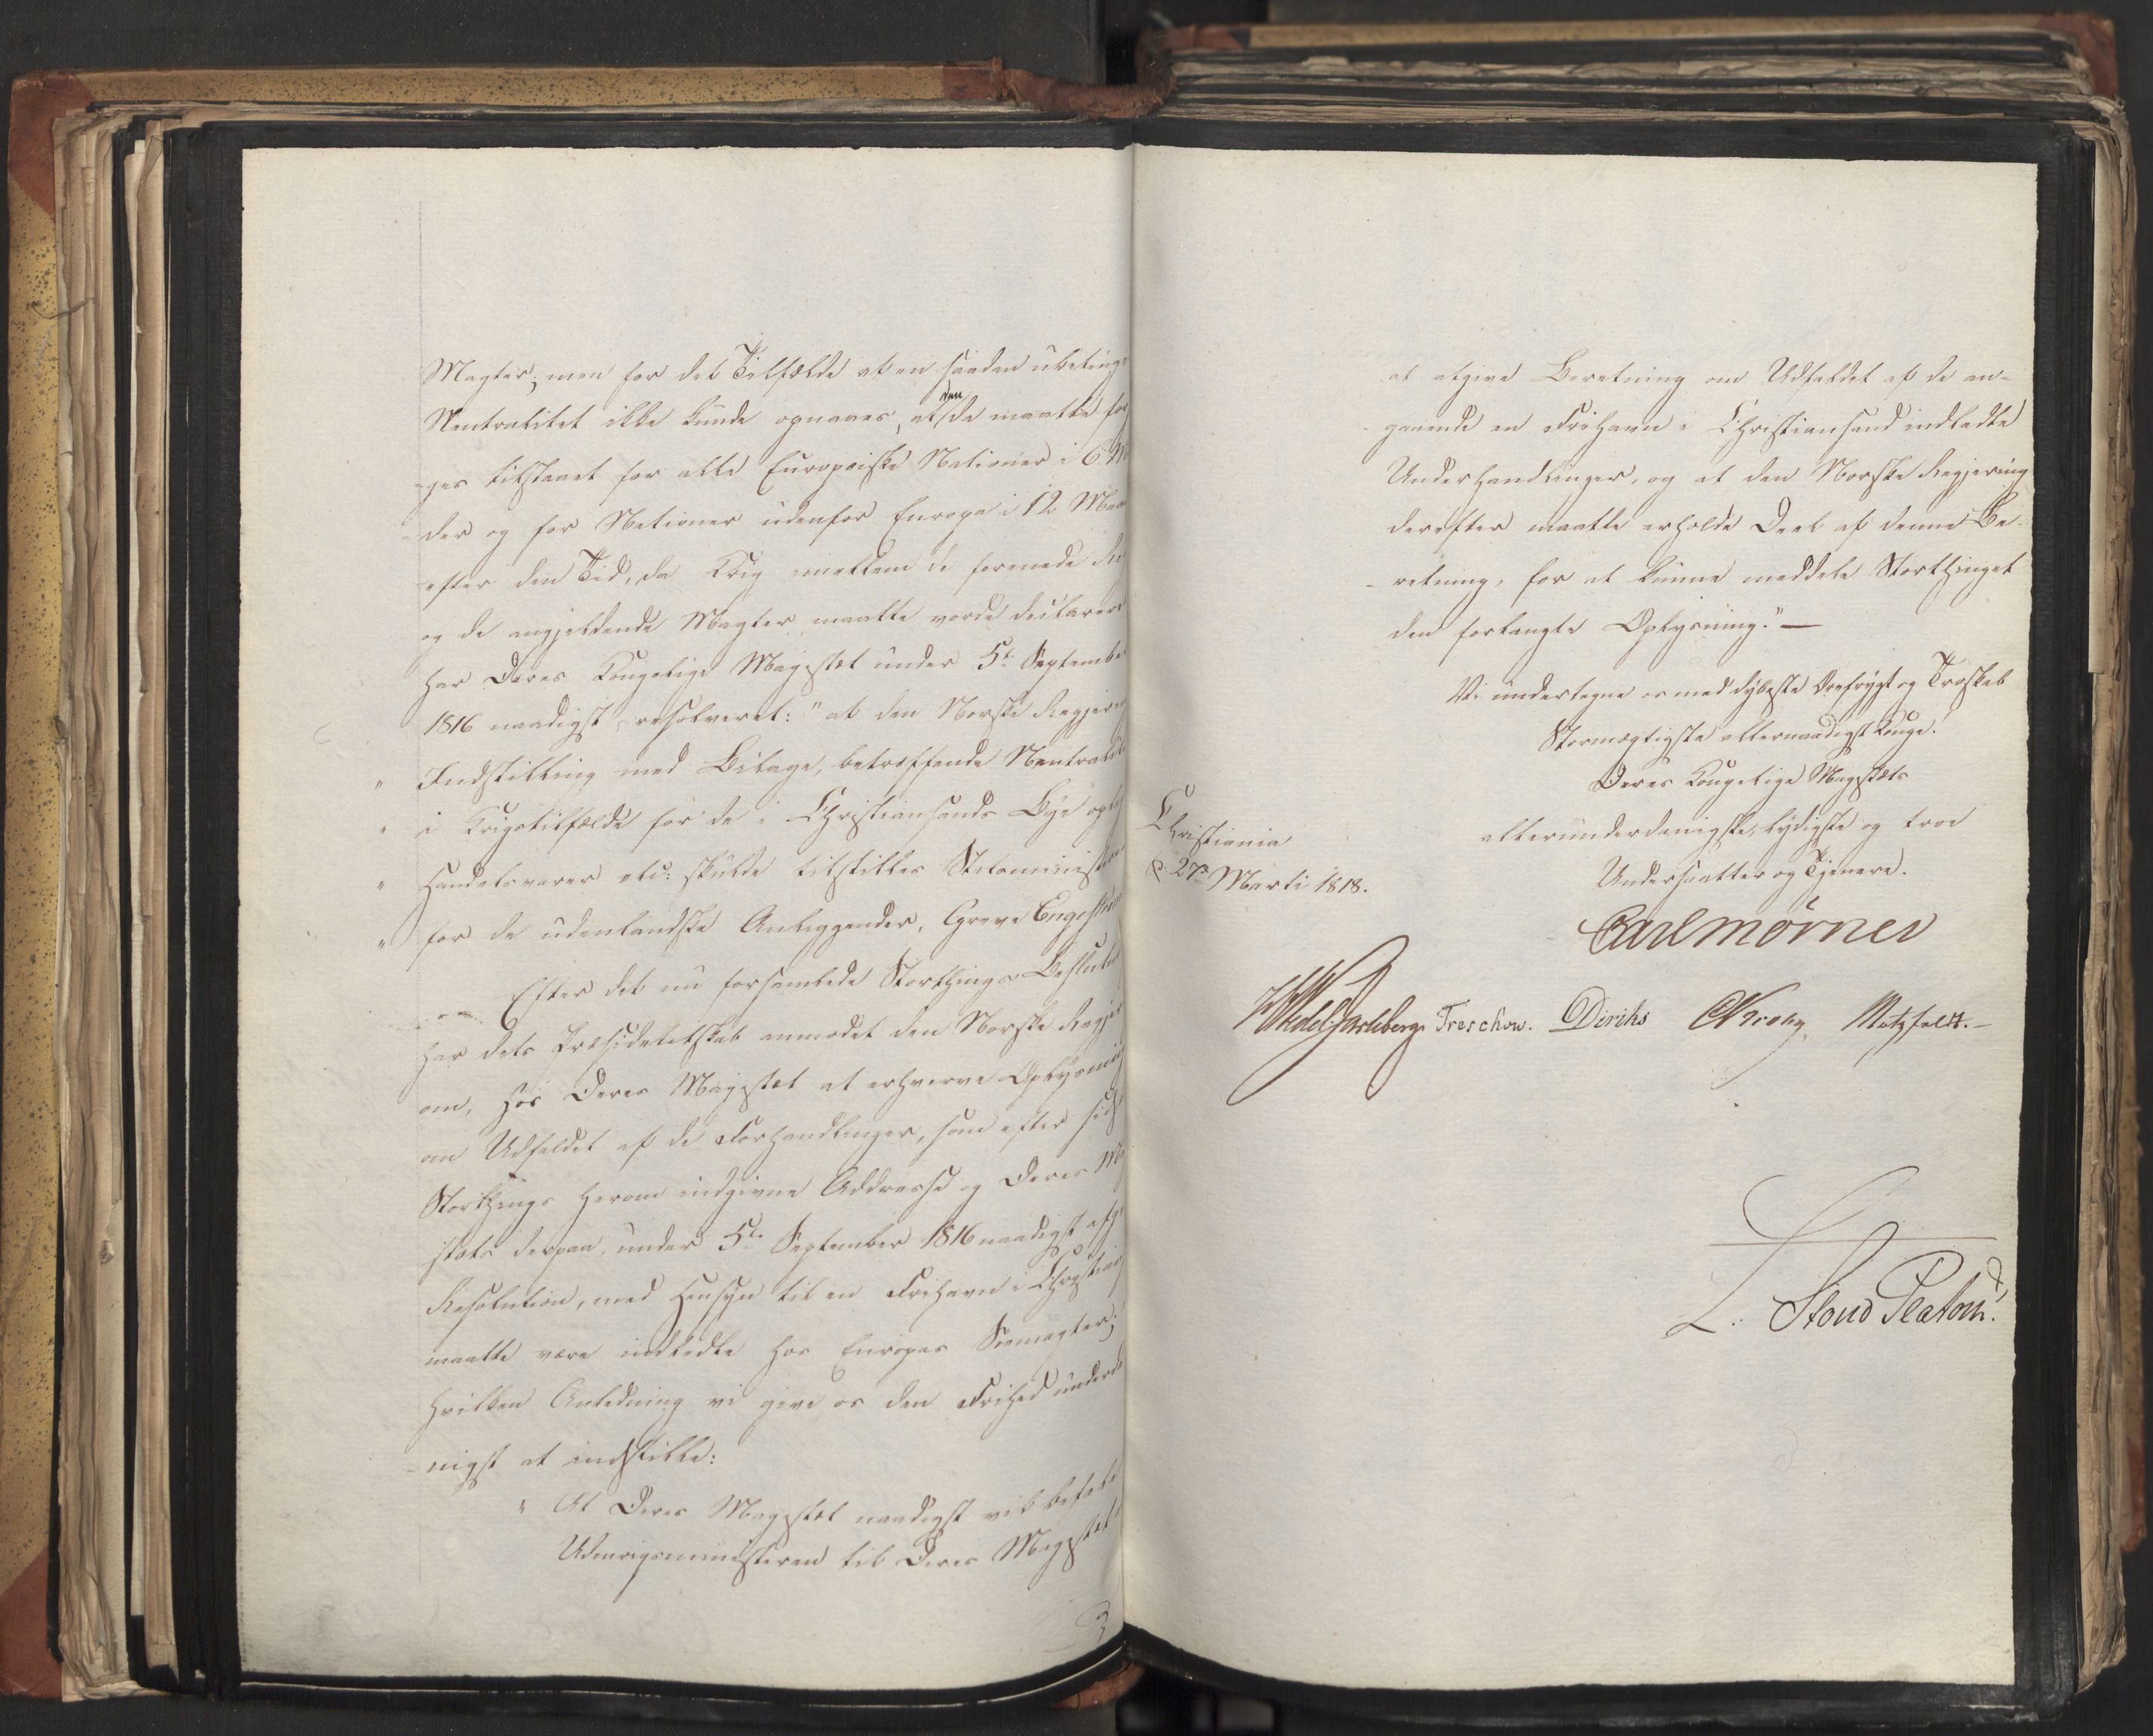 Magter; men for det Tilfælde at en saadan ubeting
Neutralitet ikke kunde opnaaes, at den de maatte for
ges tilstaaet for alle Europæiske Nationer i 6 M
der og for Nationer udenfor Europa i 12 Maa
efter den Tid, da Krig imellem de forenede Ri
og de angjeldende Magter maatte vorde declarere
har Deres Kongelige Majestæt under 5te Septembe
1816 naadigst resolveret: "at den Norske Regjerin
" Indstilling med Bilage, betræffende Neutralite
" i Krigstilfælde for de i Christiansands Bye opl
" Handelsvarer etc: skulde tilstilles Statsminist
" for de udenlandske Anliggender, Greve Engestrøm
Efter det nu forsamlede Storthings Beslutn
har dets Præsidentskab anmodet den Norske Regje
om, hos Deres Majestæt at erhverve Oplysnin
om Udfaldet af de Forhandlinger, som efter sid
Storthings herom indgivne Addresse og Deres Ma
jestæts derpaa, under 5te September 1816 naadigst afg
Resolution, med Hensyn til en Frihavn i Christian
maatte være indledte hos Europas Sømagter;
hvilken Anledning vi give os den Frihed underd
-nigst at indstille:
" At Deres Majestæt naadigst vil befale
Udenrigsministeren til Deres Majestæt
at afgive Beretning om Udfaldet af de an-
gaaende en Frihavn i Christiansand indledte
Underhandlinger, og at den Norske Regjering
derefter maatte erholde Deel af denne Be-
-retning, for at kunne meddele Storthinget
den forlangte Oplysning." —
Vi undertegne os med dybeste Ærefrygt og Troskab
Stormægtigste allernaadigst Konge!
Deres Kongelige Majestæts
allerunderdanigste, lydigste og troe
Undersaatter og Tjenere.
Christiania
d. 27de Marti 1818.
Carl Mörner
Wedel Jarlsberg Treschow. Diriks CKrohg. Motzfeldt. —
L: Stoud Platou.